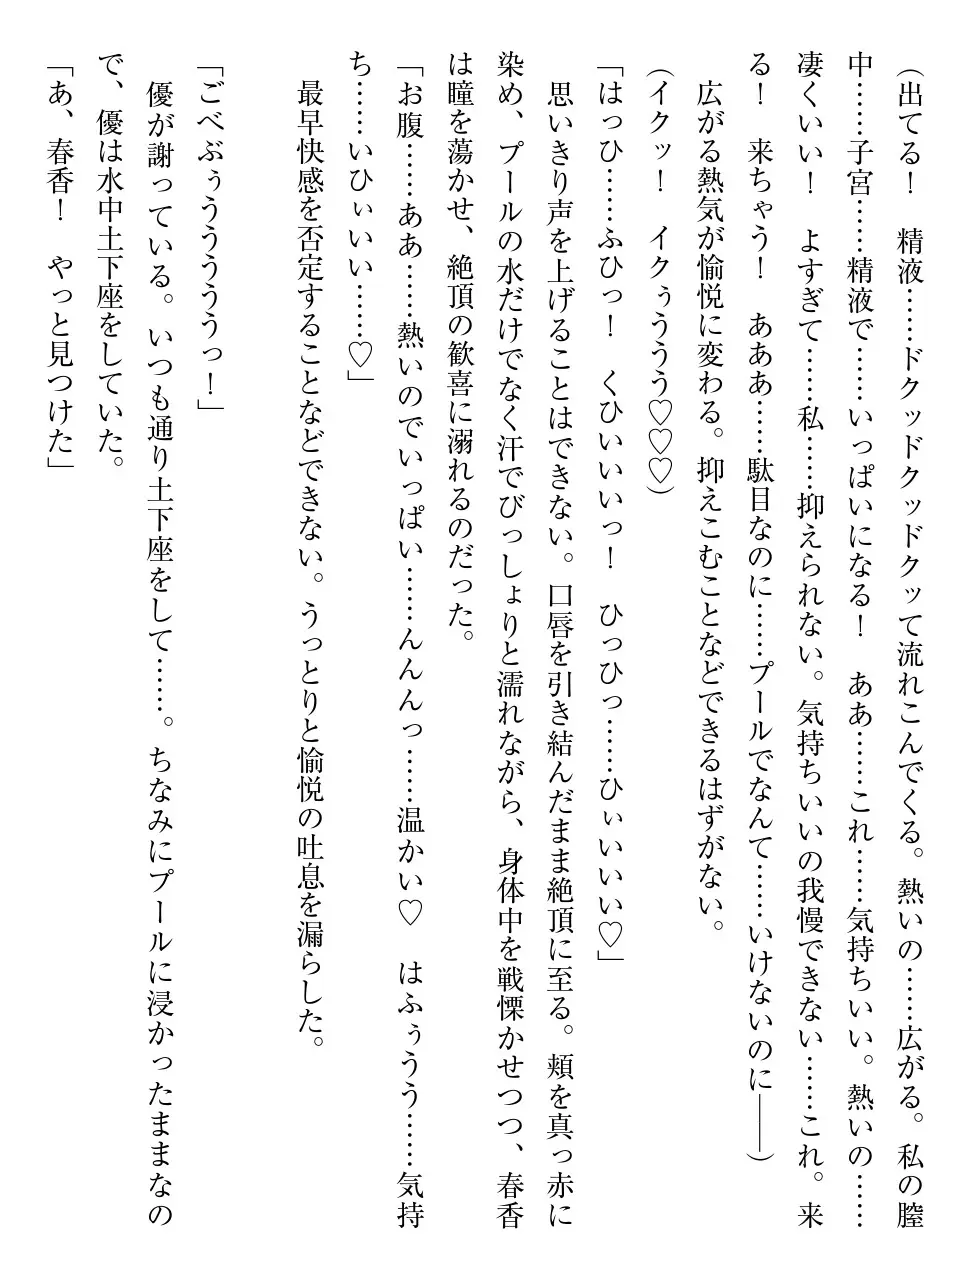 （出てる！　精液……ドクッドクッドクッて流れこんでくる。熱いの……広がる。私の膣
中……子宮……精液で……いっぱいになる！　ああ……これ……気持ちいい。熱いの……
凄くいい！　よすぎて……私……抑えられない。気持ちいいの我慢できない……これ。来
る！　来ちゃう！　あああ……駄目なのに……プールでなんて……いけないのに――）
　広がる熱気が愉悦に変わる。抑えこむことなどできるはずがない。
（イクッ！　イクぅううう♡♡♡）
「はっひ……ふひっ！　くひいいいっ！　ひっひっ……ひぃいいい♡」
　思いきり声を上げることはできない。口唇を引き結んだまま絶頂に至る。頬を真っ赤に
染め、プールの水だけでなく汗でびっしょりと濡れながら、身体中を戦慄かせつつ、春香
は瞳を蕩かせ、絶頂の歓喜に溺れるのだった。
「お腹……ああ……熱いのでいっぱい……んんんっ……温かい♡　はふぅうう……気持
ち……いひぃいい……♡」
　最早快感を否定することなどできない。うっとりと愉悦の吐息を漏らした。
「ごべぶぅうううううっ！」
　優が謝っている。いつも通り土下座をして……。ちなみにプールに浸かったままなの
で、優は水中土下座をしていた。
「あ、春香！　やっと見つけた」